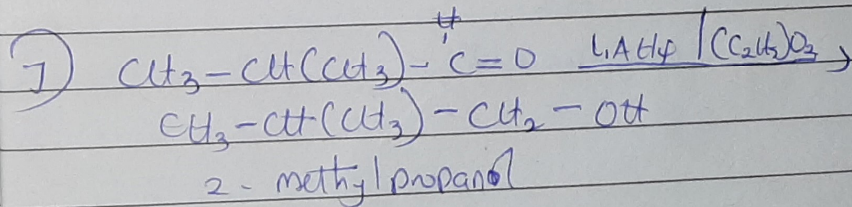 H
1) CH3-CH(CH3)-C=O LiAlH4/(C2H5)O2
CH3-CH(CH3)-CH2-OH
2-methylpropanol